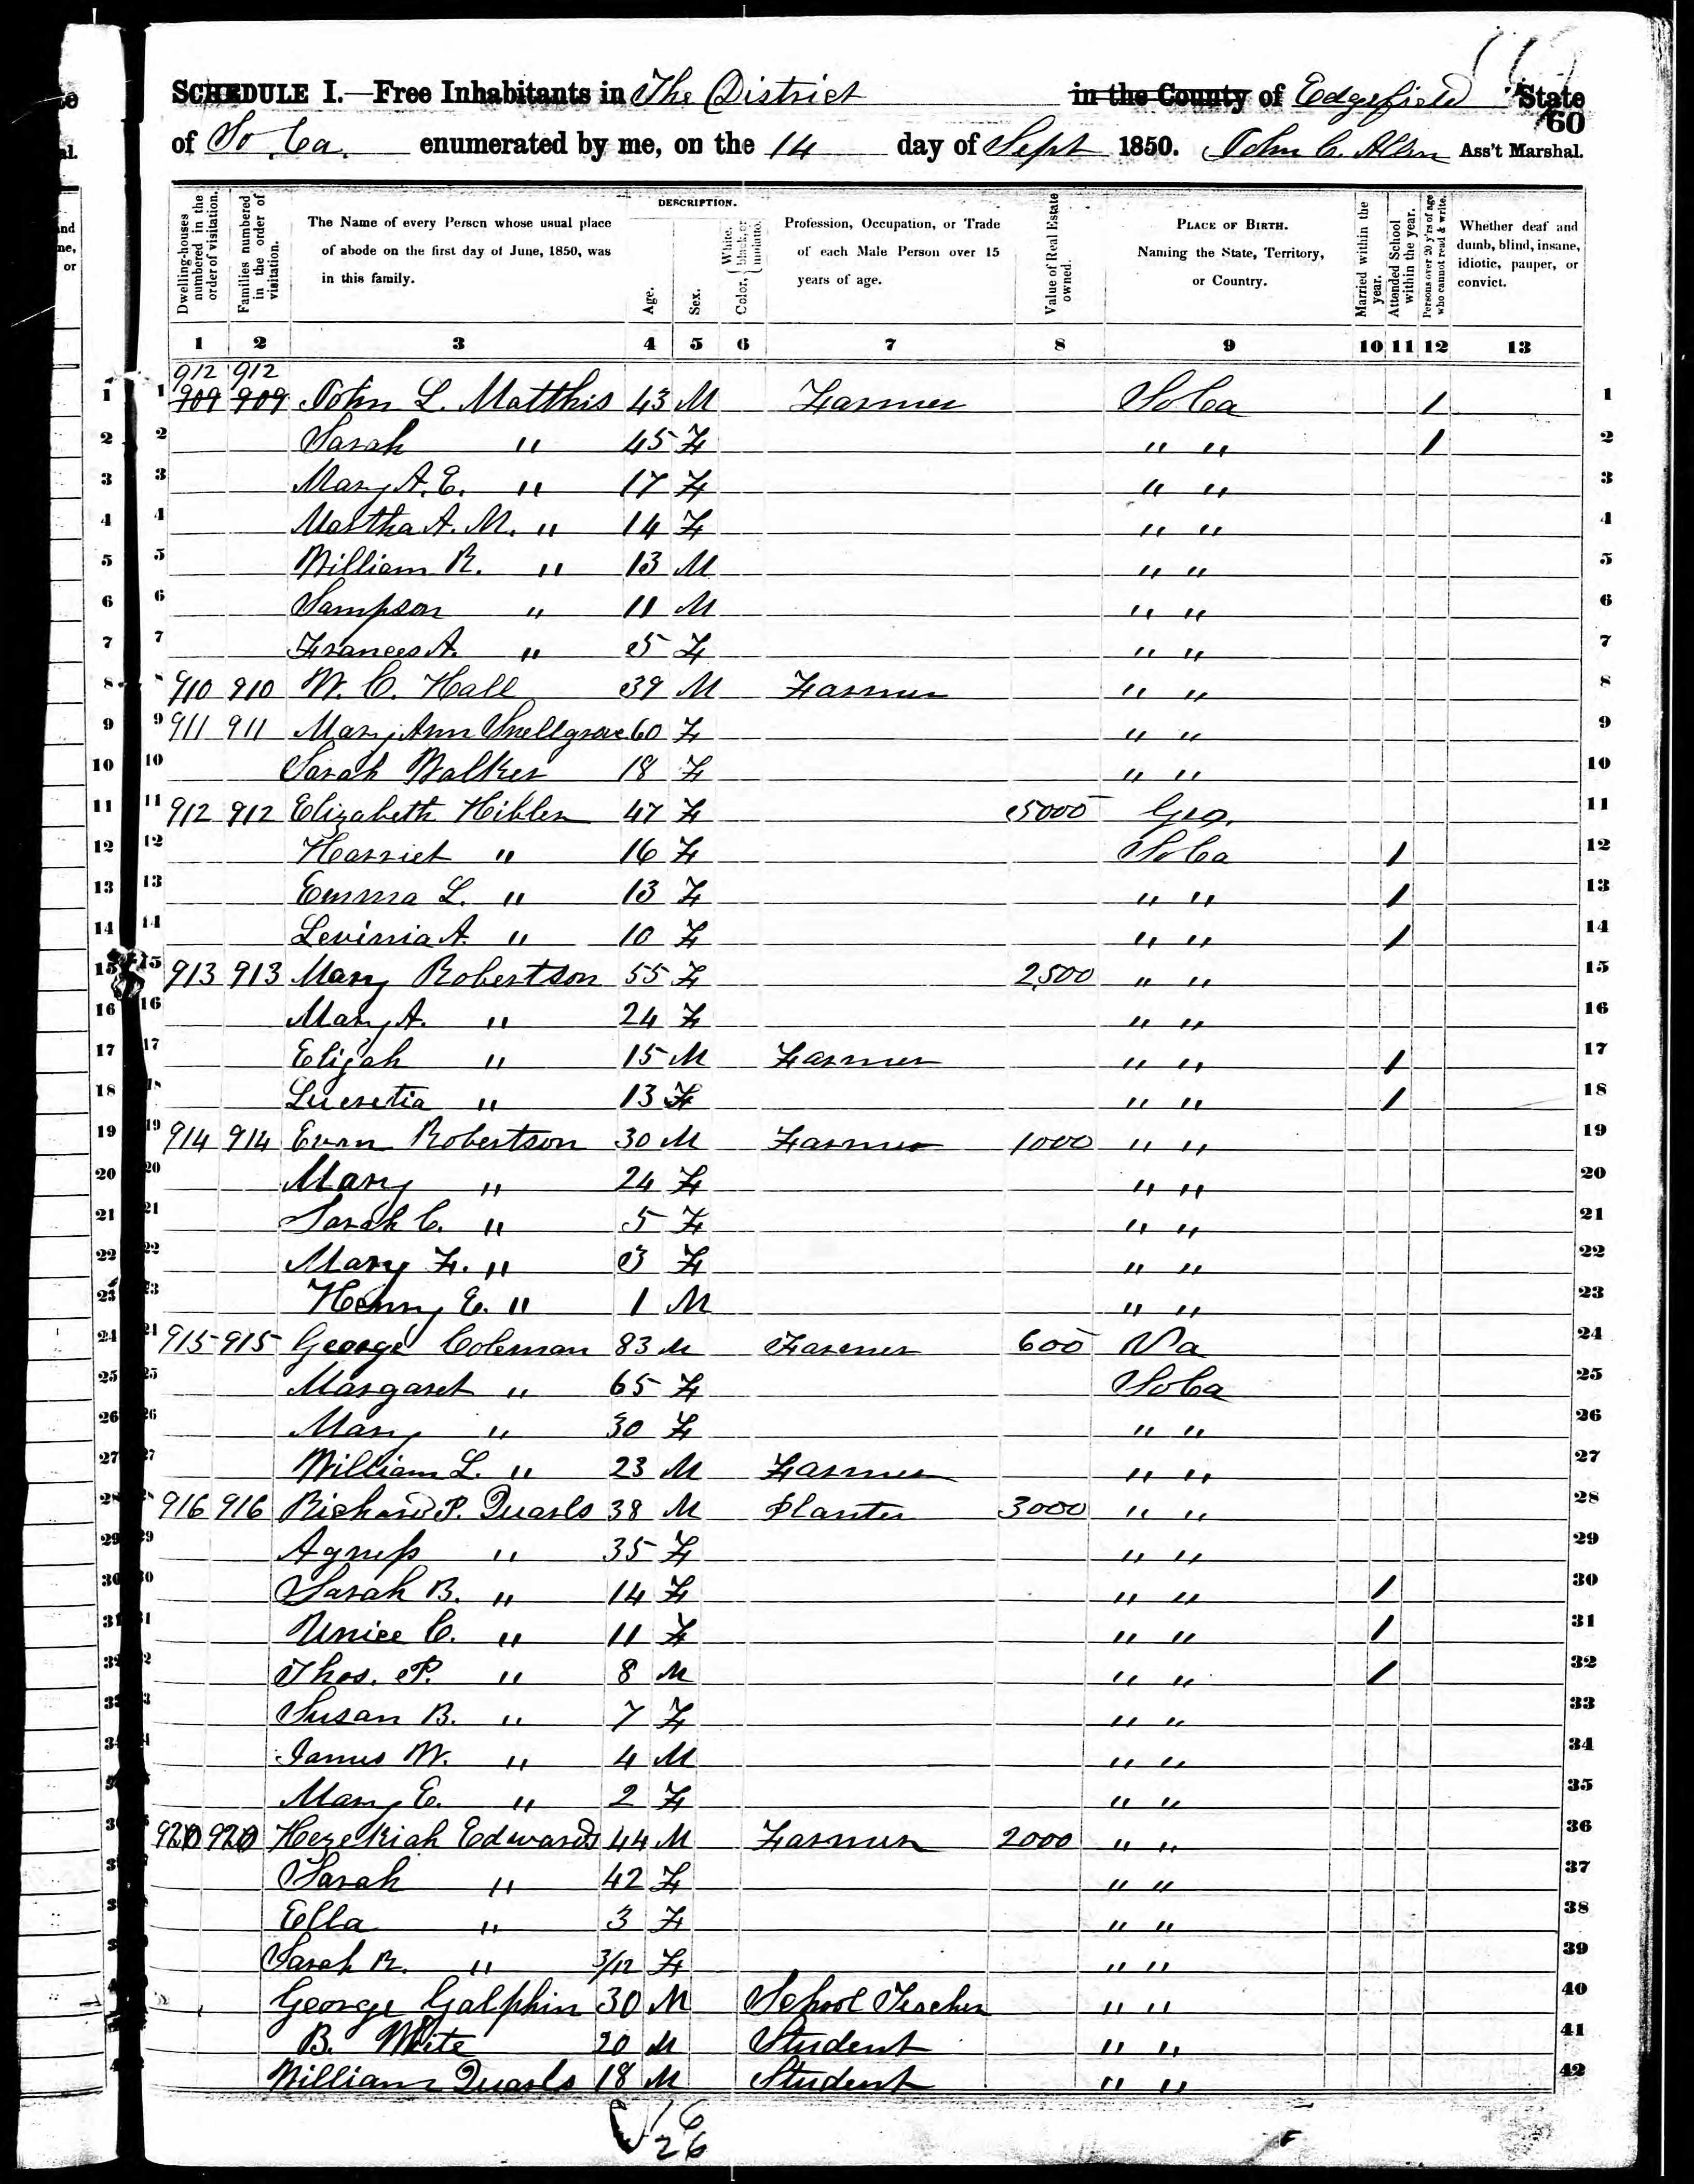 SCHEDULE I.—Free Inhabitants in The District in the County of Edgefield State
60
of So Ca. enumerated by me, on the 14 day of Sept 1850. John C. Allen Ass't Marshal.
DESCRIPTION.
Dwelling-houses numbered in the order of visitation.
Families numbered in the order of visitation.
The Name of every Person whose usual place of abode on the first day of June, 1850, was in this family.
Age.
Sex.
Color, { White, black, or mulatto.
Profession, Occupation, or Trade of each Male Person over 15 years of age.
Value of Real Estate owned.
PLACE OF BIRTH. Naming the State, Territory, or Country.
Married within the year.
Attended School within the year.
Persons over 20 y'rs of age who cannot read & write.
Whether deaf and dumb, blind, insane, idiotic, pauper, or convict.
1 2 3 4 5 6 7 8 9 10 11 12 13
912 912
1 909 909 John L. Matthis 43 M Farmer So Ca / 1
2 Sarah " 45 F " " / 2
3 Mary A. E. " 17 F " " 3
4 Martha A. M. " 14 F " " 4
5 William R. " 13 M " " 5
6 Sampson " 11 M " " 6
7 Frances A. " 5 F " " 7
8 910 910 W. C. Hall 39 M Farmer " " 8
9 911 911 Mary Ann Snellgrove 60 F " " 9
10 Sarah Walker 18 F " " 10
11 912 912 Elizabeth Hibler 47 F 5000 Geo. 11
12 Harriet " 16 F So Ca / 12
13 Emma L. " 13 F " " / 13
14 Levinia A. " 10 F " " / 14
15 913 913 Mary Robertson 55 F 2,500 " " 15
16 Mary A. " 24 F " " 16
17 Elijah " 15 M Farmer " " / 17
18 Lucretia " 13 F " " / 18
19 914 914 Evan Robertson 30 M Farmer 1000 " " 19
20 Mary " 24 F " " 20
21 Sarah C. " 5 F " " 21
22 Mary F. " 3 F " " 22
23 Henry E. " 1 M " " 23
24 915 915 George Coleman 83 M Farmer 600 Va 24
25 Margaret " 65 F So Ca 25
26 Mary " 30 F " " 26
27 William L. " 23 M Farmer " " 27
28 916 916 Richard P. Quarls 38 M Planter 3000 " " 28
29 Agness " 35 F " " 29
30 Sarah B. " 14 F " " / 30
31 Unice C. " 11 F " " / 31
32 Thos. P. " 8 M " " / 32
33 Susan B. " 7 F " " 33
34 James W. " 4 M " " 34
Mary E. " 2 F " " 35
920 920 Hezekiah Edwards 44 M Farmer 2000 " " 36
Sarah " 42 F " " 37
Ella " 3 F " " 38
Sarah R. " 3/12 F " " 39
George Galphin 30 M School Teacher " " 40
B. White 20 M Student " " 41
William Quarls 18 M Student " " 42
16
26